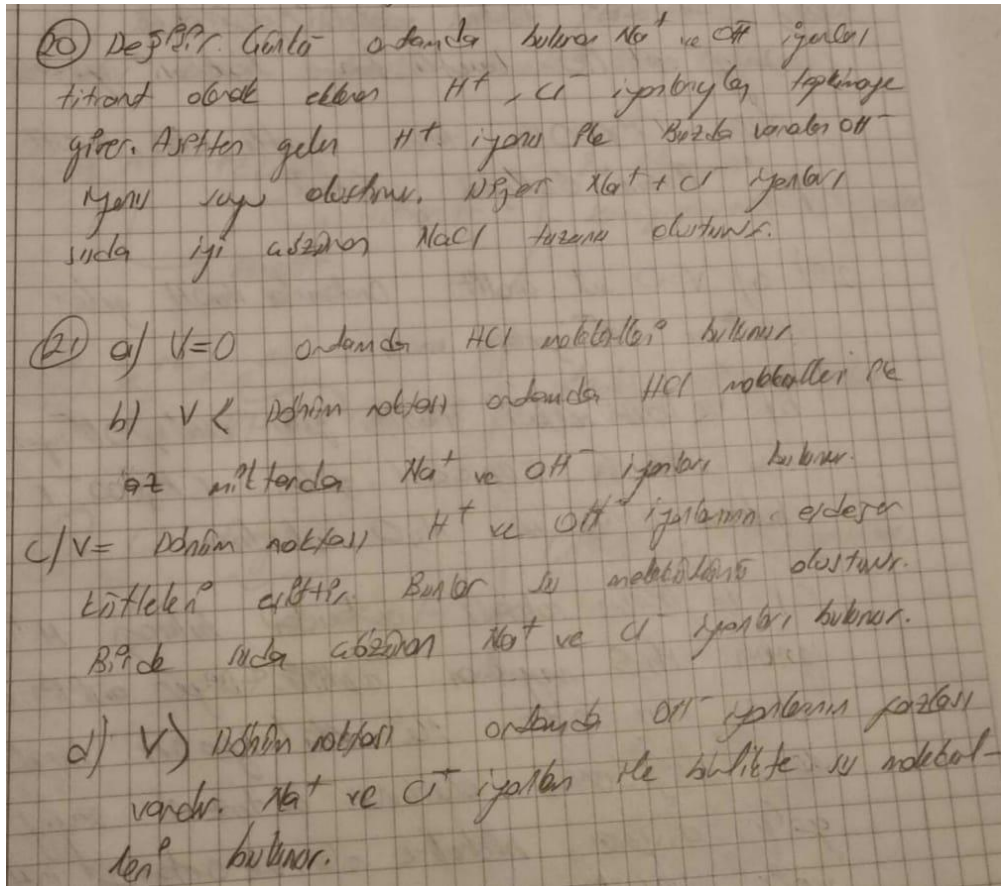 20) Değişir. Çünkü ortamda bulunan Na⁺ ve OH⁻ iyonları
titrant olarak eklenen H⁺, Cl⁻ iyonlarıyla tepkimeye
girer. Asitten gelen H⁺ iyonu ile Bazda var olan OH⁻
iyonu suyu oluşturur. Diğer Na⁺ + Cl⁻ iyonları
suda iyi çözünen NaCl tuzunu oluşturur.
21) a) V=0 ortamda HCl molekülleri bulunur.
b) V < Dönüm noktası ortamda HCl molekülleri ile
az miktarda Na⁺ ve OH⁻ iyonları bulunur.
c) V= Dönüm noktası H⁺ ve OH⁻ iyonlarının eşdeğer
kütleleri eşittir. Bunlar su molekülünü oluşturur.
Birde suda çözünen Na⁺ ve Cl⁻ iyonları bulunur.
d) V> Dönüm noktası ortamda OH⁻ iyonlarının fazlası
vardır. Na⁺ ve Cl⁺ iyonları ile birlikte su molekül-
leri bulunur.